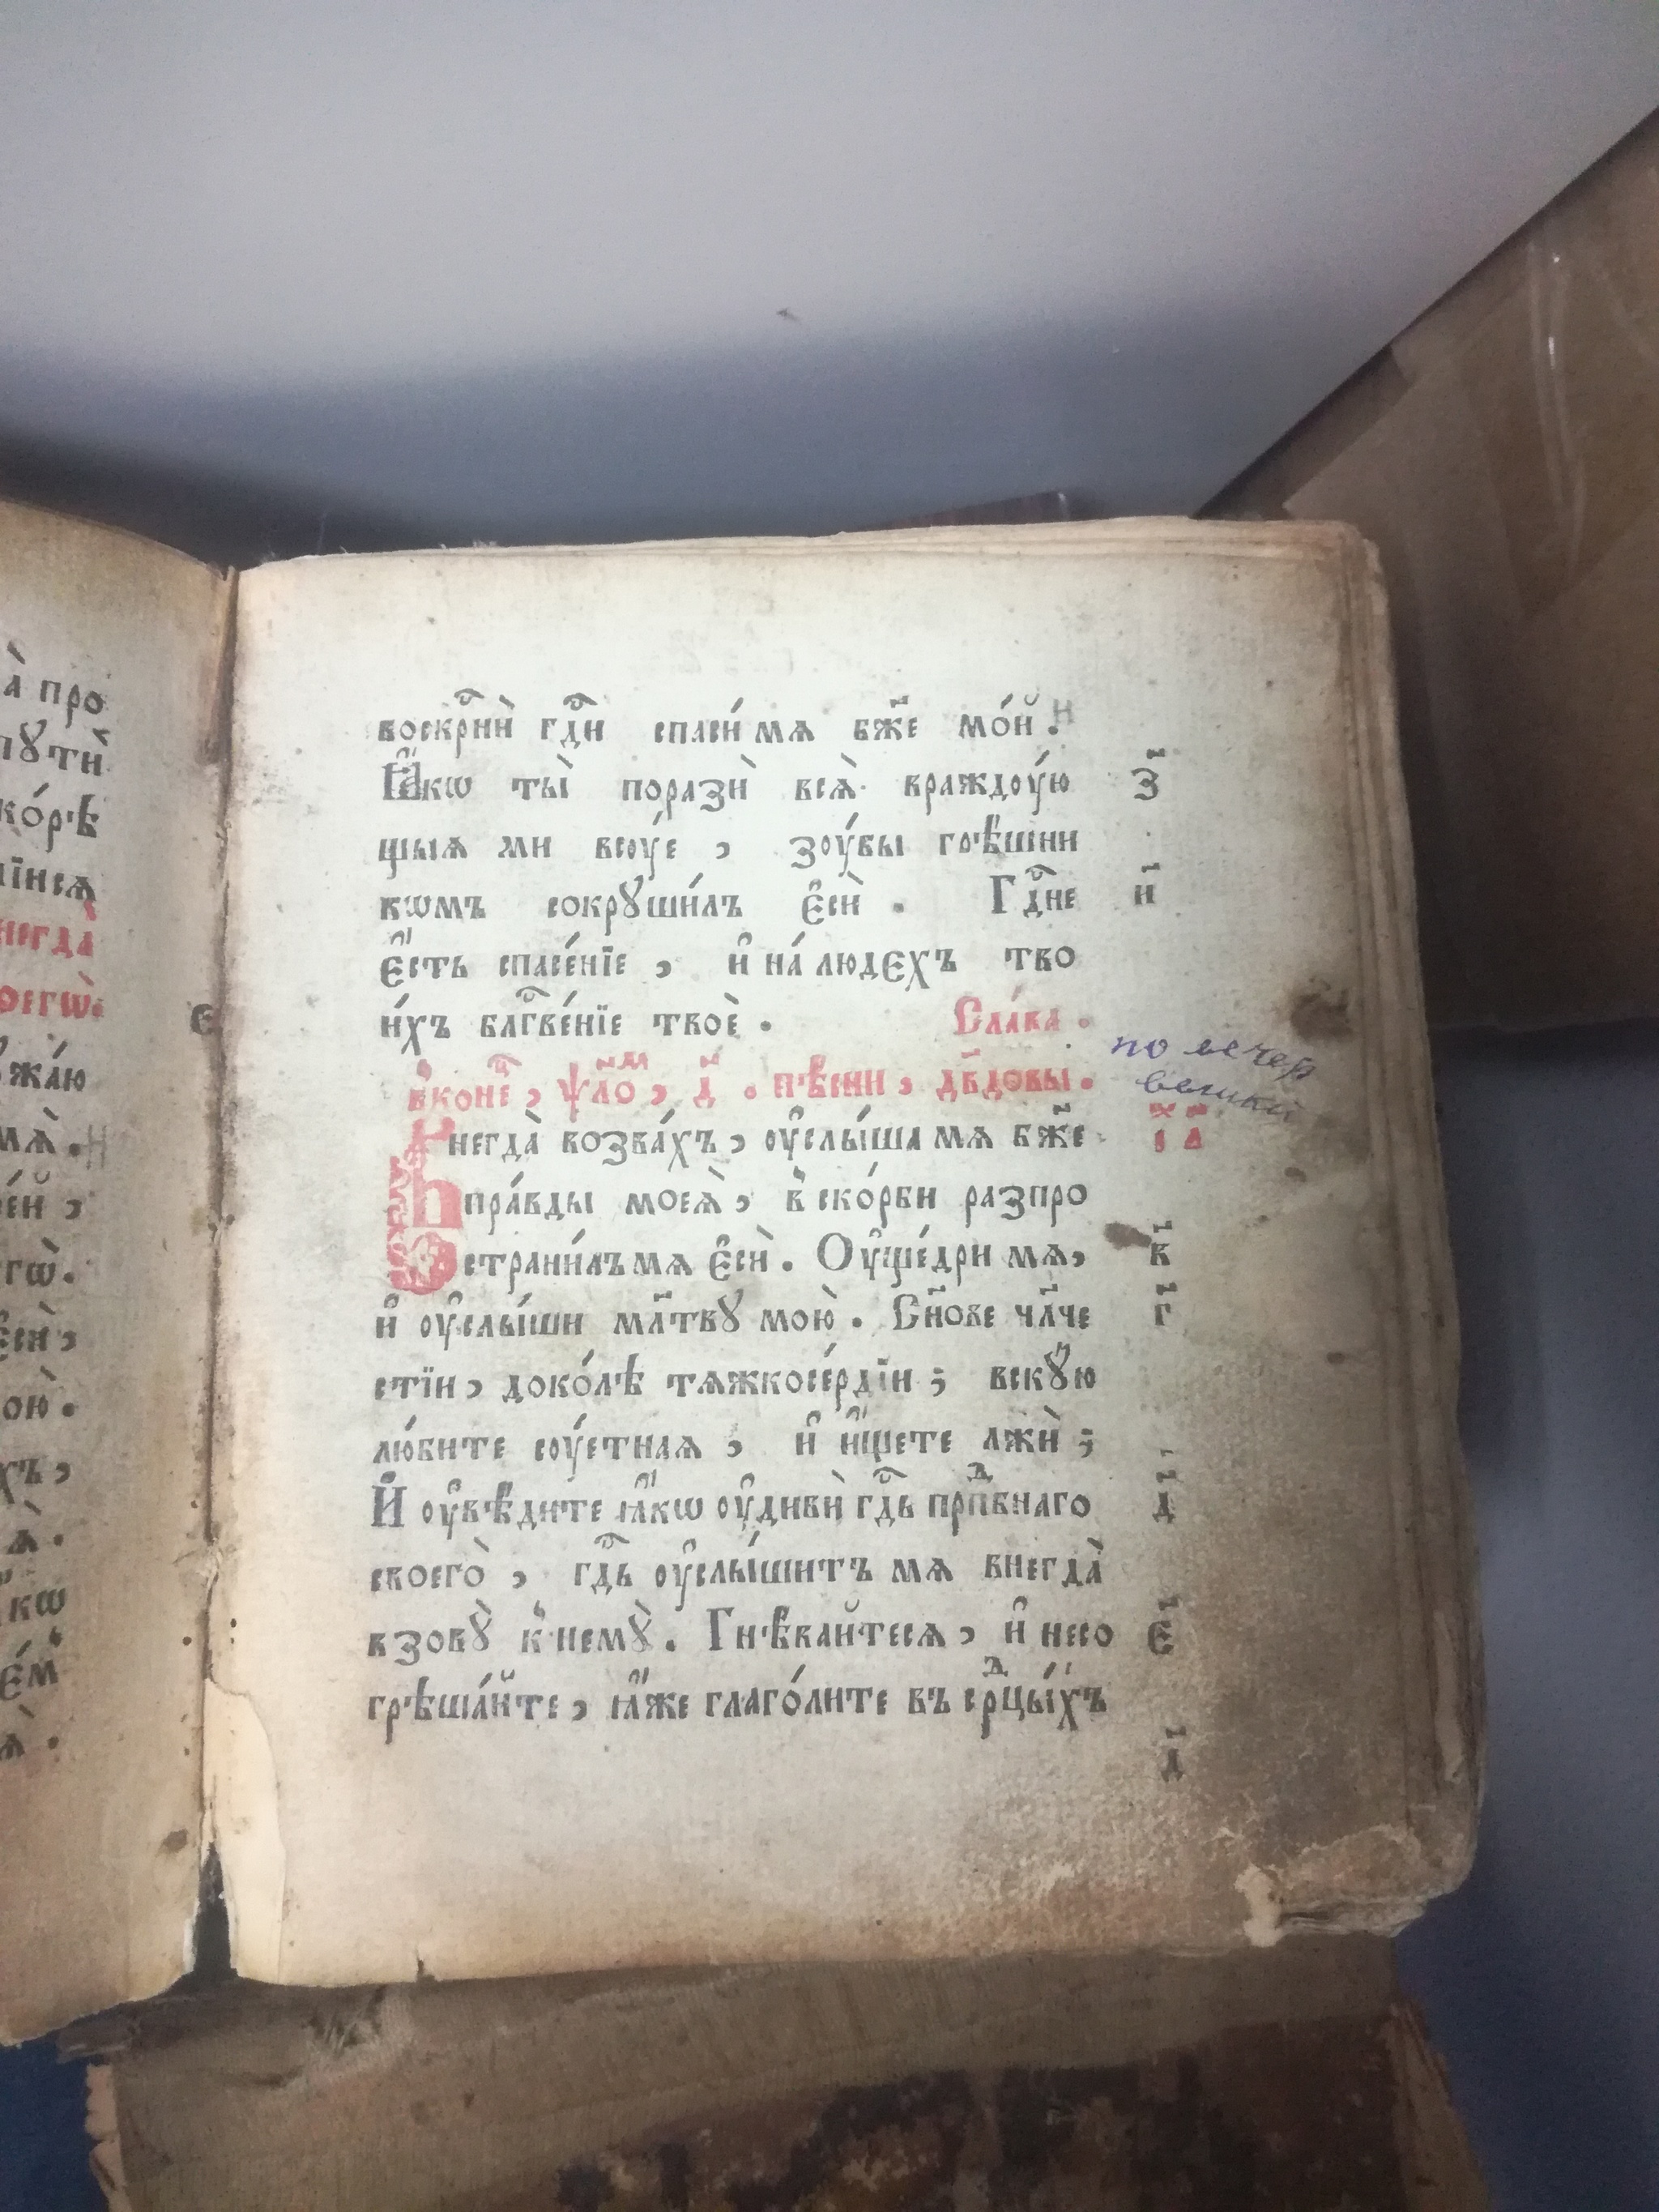 а̀ про
пꙋтѝ
ко́рѣ
їисѧ
негда̀
оегѡ̀.
жа́ю
мѧ̀.
е́й ,
гѡ̀.
є҆сѝ ,
ою̀.
хъ ,
ѧ̀.
кѡ
є́м
ѧ̀.
Є
воскрⷭ҇нѝ гдⷭ҇и спаси́ мѧ бж҃е мо́й.
Ꙗ҆́кѡ ты̀ поразѝ всѧ̀ враждоу́ю
З҃
щыѧ ми всоу́е , зоу́бы грѣ́шни
кѡмъ сокрꙋши́лъ є҆сѝ . Гдⷭ҇не
и҃
є҆́сть спасе́нїе , и҆ на́ людєхъ тво
и́хъ блгⷭ҇ве́нїе твоѐ . Сла́ва .
в̾ конеⷰ҇ , ѱ҃ло́ⷨ , д҃ . пѣ́сни , дв҃довы .
по вечер
велики
Внегда̀ возва́хъ , оу҆слы́ша мѧ бж҃е
пра́вды моеѧ̀ , в̾ ско́рби разпро
страни́лъ мѧ є҆сѝ . Оу҆ще́дри мѧ ,
в҃
и҆ оу҆слы́ши мл҃твꙋ мою̀ . Сн҃ове чл҃че
г҃
стїи , доко́лѣ тѧжкосе́рдїи ; вскꙋ́ю
лю́бите соу́етнаѧ , и҆ и҆́щете лжѝ ;
И҆ оу҆вѣ́дите ꙗ҆́кѡ оу҆дивѝ гдⷭ҇ь прпⷣбнаго
д҃
своего̀ , гдⷭ҇ь оу҆слы́шитъ мѧ внегда̀
взовꙋ̀ к̾ немꙋ̀ . Гнѣ́вайтесѧ , и҆ несо
є҃
грѣша́йте , ꙗ҆́же глаго́лите въ срⷣцы́хъ
д҃